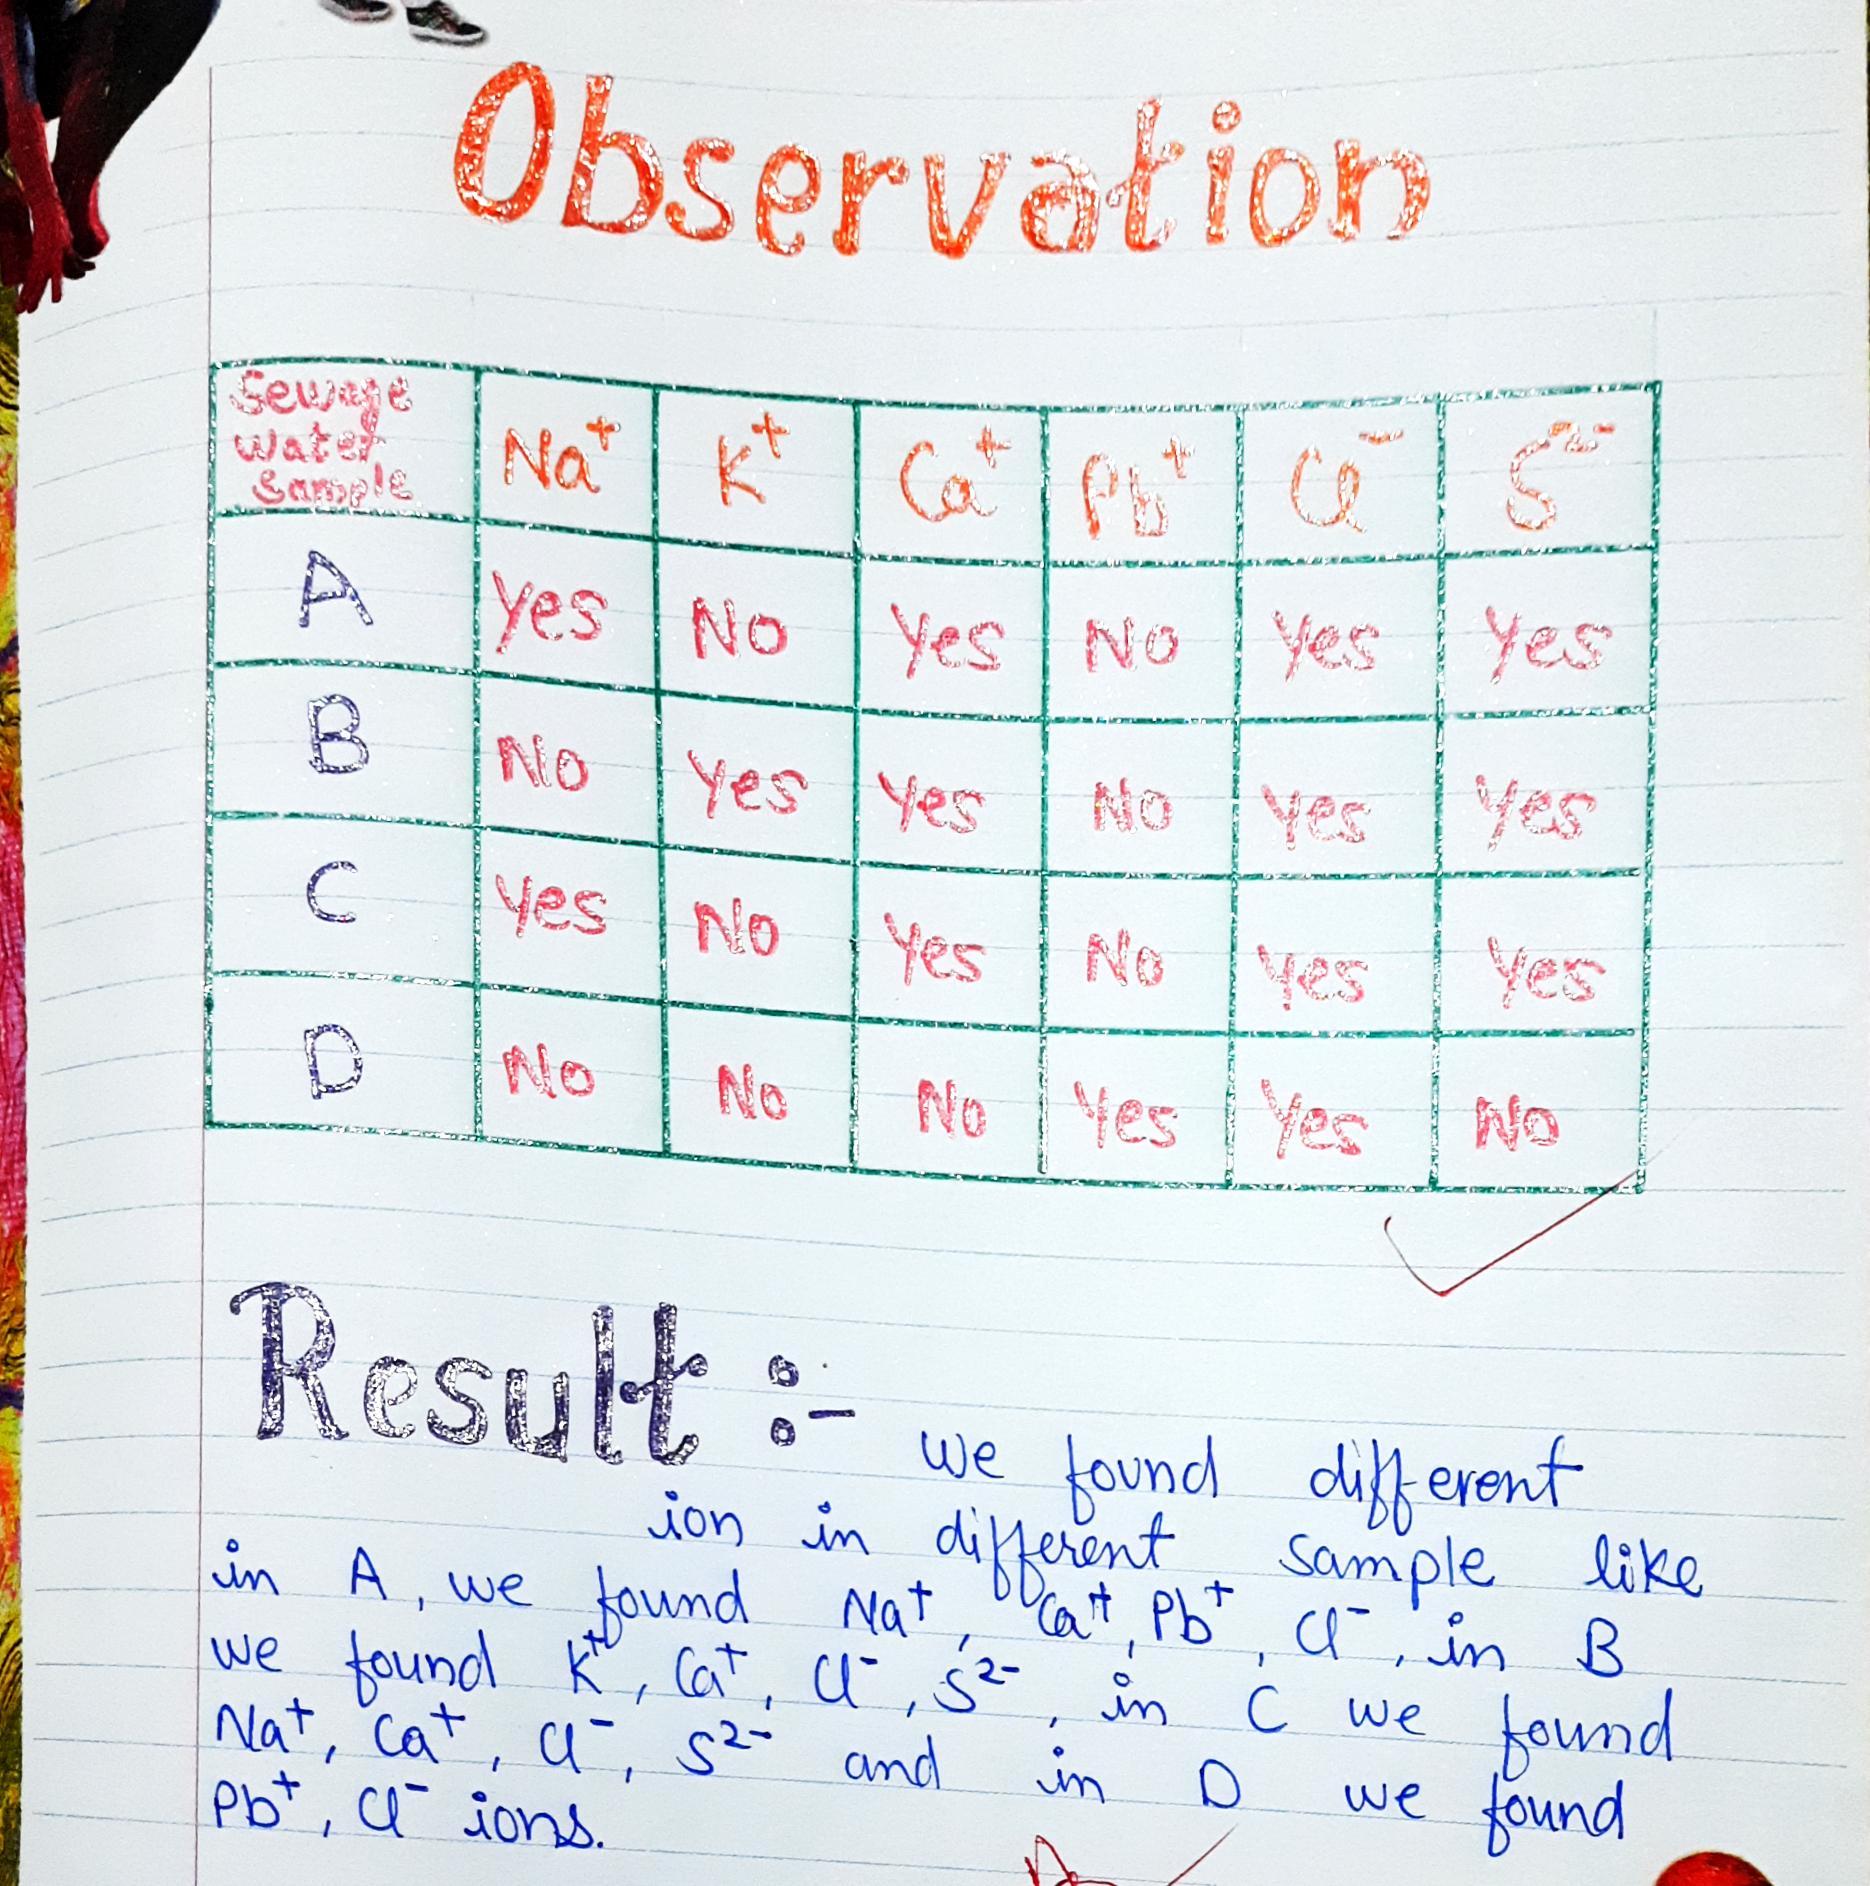 Observation
Sewage water sample Na⁺ K⁺ Ca⁺ Pb⁺ Cl⁻ S²⁻
A Yes No Yes No Yes Yes
B No Yes Yes No Yes Yes
C Yes No Yes No Yes Yes
D No No No Yes Yes No
Result :- we found different
ion in different sample like
in A, we found Na⁺, Ca⁺, Pb⁺, Cl⁻, in B
we found K⁺, Ca⁺, Cl⁻, S²⁻, in C we found
Na⁺, Ca⁺, Cl⁻, S²⁻ and in D we found
Pb⁺, Cl⁻ ions.